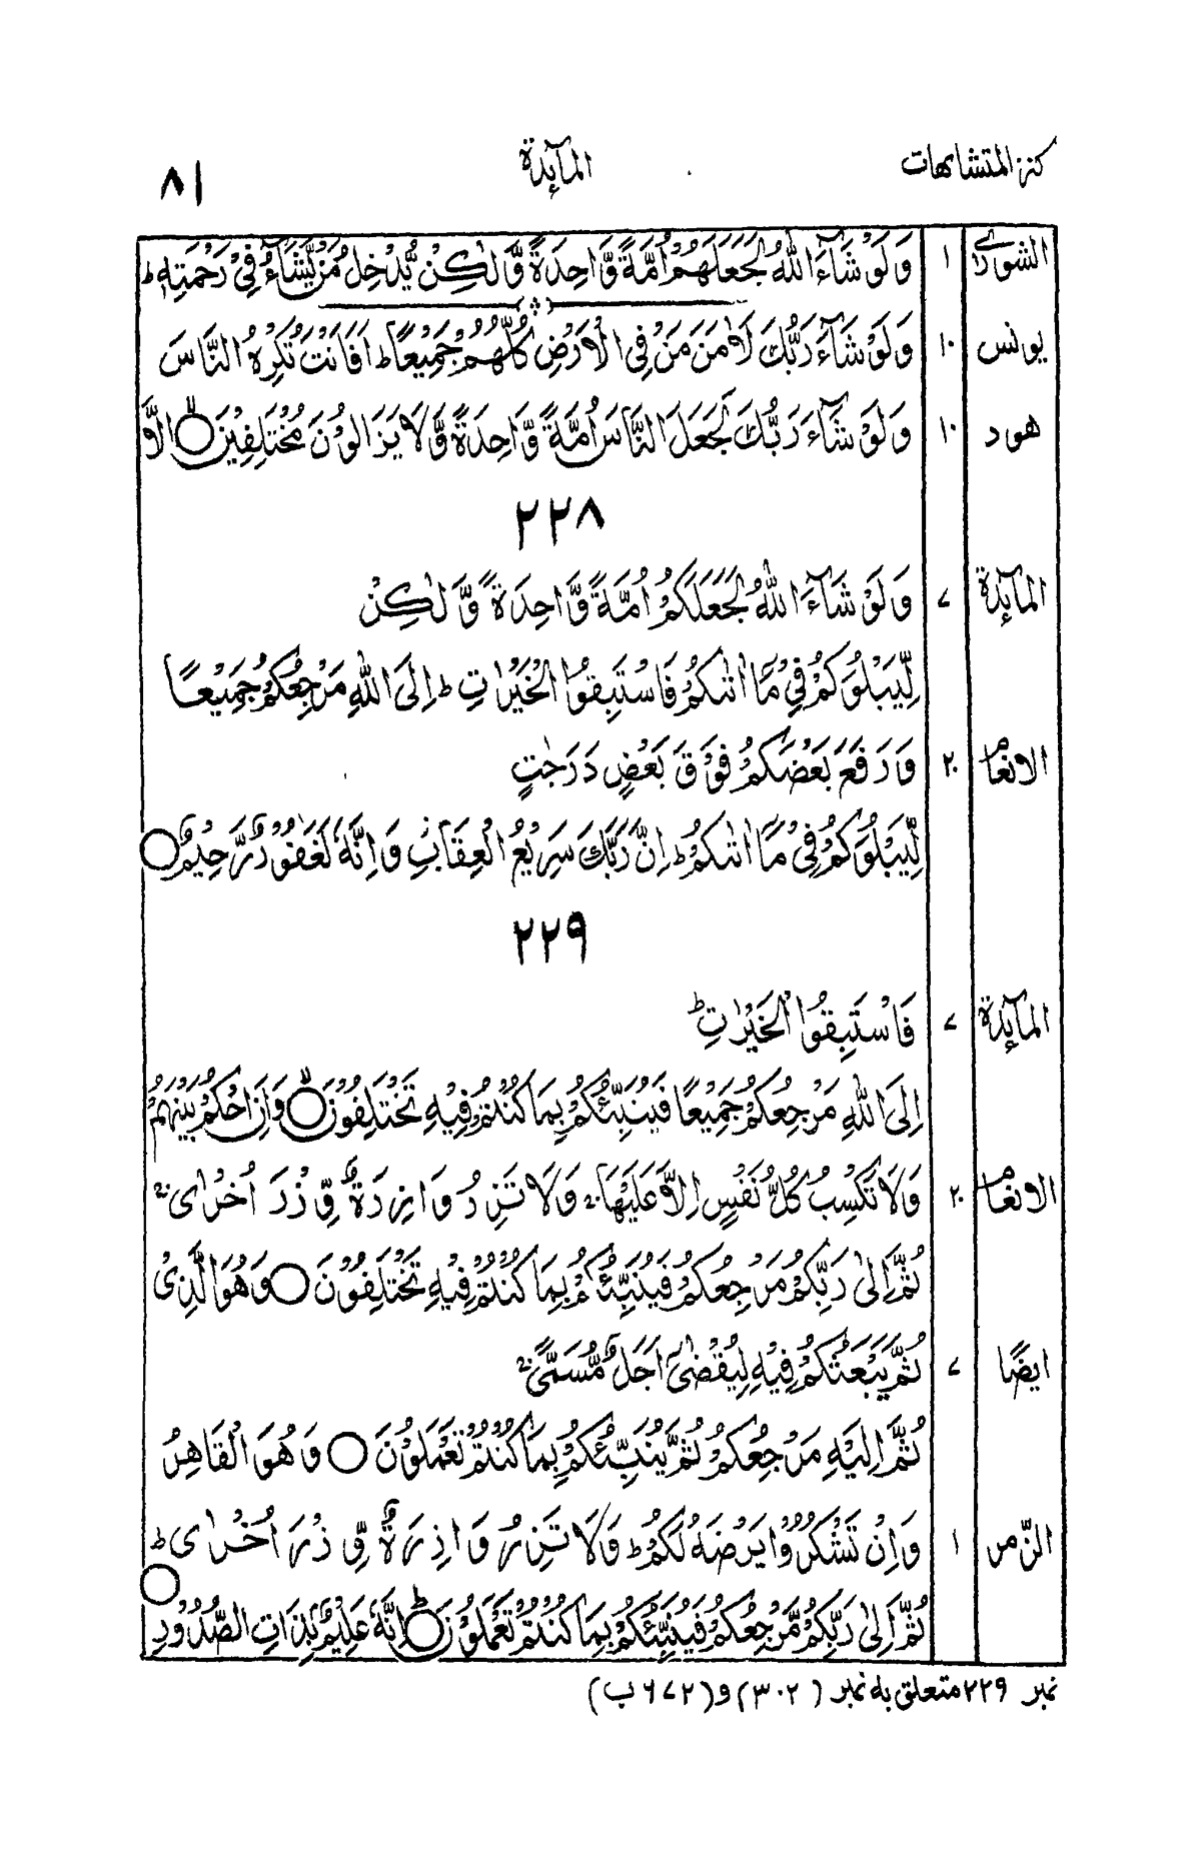 كنز المتشابهات المآئدة ٨١
الشورى ١ وَلَوْ شَآءَ اللّٰهُ لَجَعَلَهُمْ اُمَّةً وَّاحِدَةً وَّلٰكِنْ يُّدْخِلُ مَنْ يَّشَآءُ فِيْ رَحْمَتِهٖ ط
يونس ١٠ وَلَوْ شَآءَ رَبُّكَ لَاٰمَنَ مَنْ فِي الْاَرْضِ كُلُّهُمْ جَمِيْعًا ط اَفَاَنْتَ تُكْرِهُ النَّاسَ
هود ١٠ وَلَوْ شَآءَ رَبُّكَ لَجَعَلَ النَّاسَ اُمَّةً وَّاحِدَةً وَّلَا يَزَالُوْنَ مُخْتَلِفِيْنَ ○ اِلَّا
٢٢٨
المآئدة ٧ وَلَوْ شَآءَ اللّٰهُ لَجَعَلَكُمْ اُمَّةً وَّاحِدَةً وَّلٰكِنْ
لِّيَبْلُوَكُمْ فِيْ مَآ اٰتٰىكُمْ فَاسْتَبِقُوا الْخَيْرٰتِ ط اِلَى اللّٰهِ مَرْجِعُكُمْ جَمِيْعًا
الانعام ٢٠ وَرَفَعَ بَعْضَكُمْ فَوْقَ بَعْضٍ دَرَجٰتٍ
لِّيَبْلُوَكُمْ فِيْ مَآ اٰتٰىكُمْ ط اِنَّ رَبَّكَ سَرِيْعُ الْعِقَابِ وَاِنَّهٗ لَغَفُوْرٌ رَّحِيْمٌ ○
٢٢٩
المآئدة ٧ فَاسْتَبِقُوا الْخَيْرٰتِ ط
اِلَى اللّٰهِ مَرْجِعُكُمْ جَمِيْعًا فَيُنَبِّئُكُمْ بِمَا كُنْتُمْ فِيْهِ تَخْتَلِفُوْنَ ○ وَاَنِ احْكُمْ بَيْنَهُمْ
الانعام ٢٠ وَلَا تَكْسِبُ كُلُّ نَفْسٍ اِلَّا عَلَيْهَا ۚ وَلَا تَزِرُ وَازِرَةٌ وِّزْرَ اُخْرٰى ۚ
ثُمَّ اِلٰى رَبِّكُمْ مَرْجِعُكُمْ فَيُنَبِّئُكُمْ بِمَا كُنْتُمْ فِيْهِ تَخْتَلِفُوْنَ ○ وَهُوَ الَّذِيْ
ايضًا ٧ ثُمَّ يَبْعَثُكُمْ فِيْهِ لِيُقْضٰٓى اَجَلٌ مُّسَمًّى ۚ
ثُمَّ اِلَيْهِ مَرْجِعُكُمْ ثُمَّ يُنَبِّئُكُمْ بِمَا كُنْتُمْ تَعْمَلُوْنَ ○ وَهُوَ الْقَاهِرُ
الزّمر ١ وَاِنْ تَشْكُرُوْا يَرْضَهُ لَكُمْ ط وَلَا تَزِرُ وَازِرَةٌ وِّزْرَ اُخْرٰى ط
ثُمَّ اِلٰى رَبِّكُمْ مَّرْجِعُكُمْ فَيُنَبِّئُكُمْ بِمَا كُنْتُمْ تَعْمَلُوْنَ ط اِنَّهٗ عَلِيْمٌۢ بِذَاتِ الصُّدُوْرِ ○
نمبر ٢٢٩ متعلق به نمبر (٣٠٢) و (٦٧٢ ب)